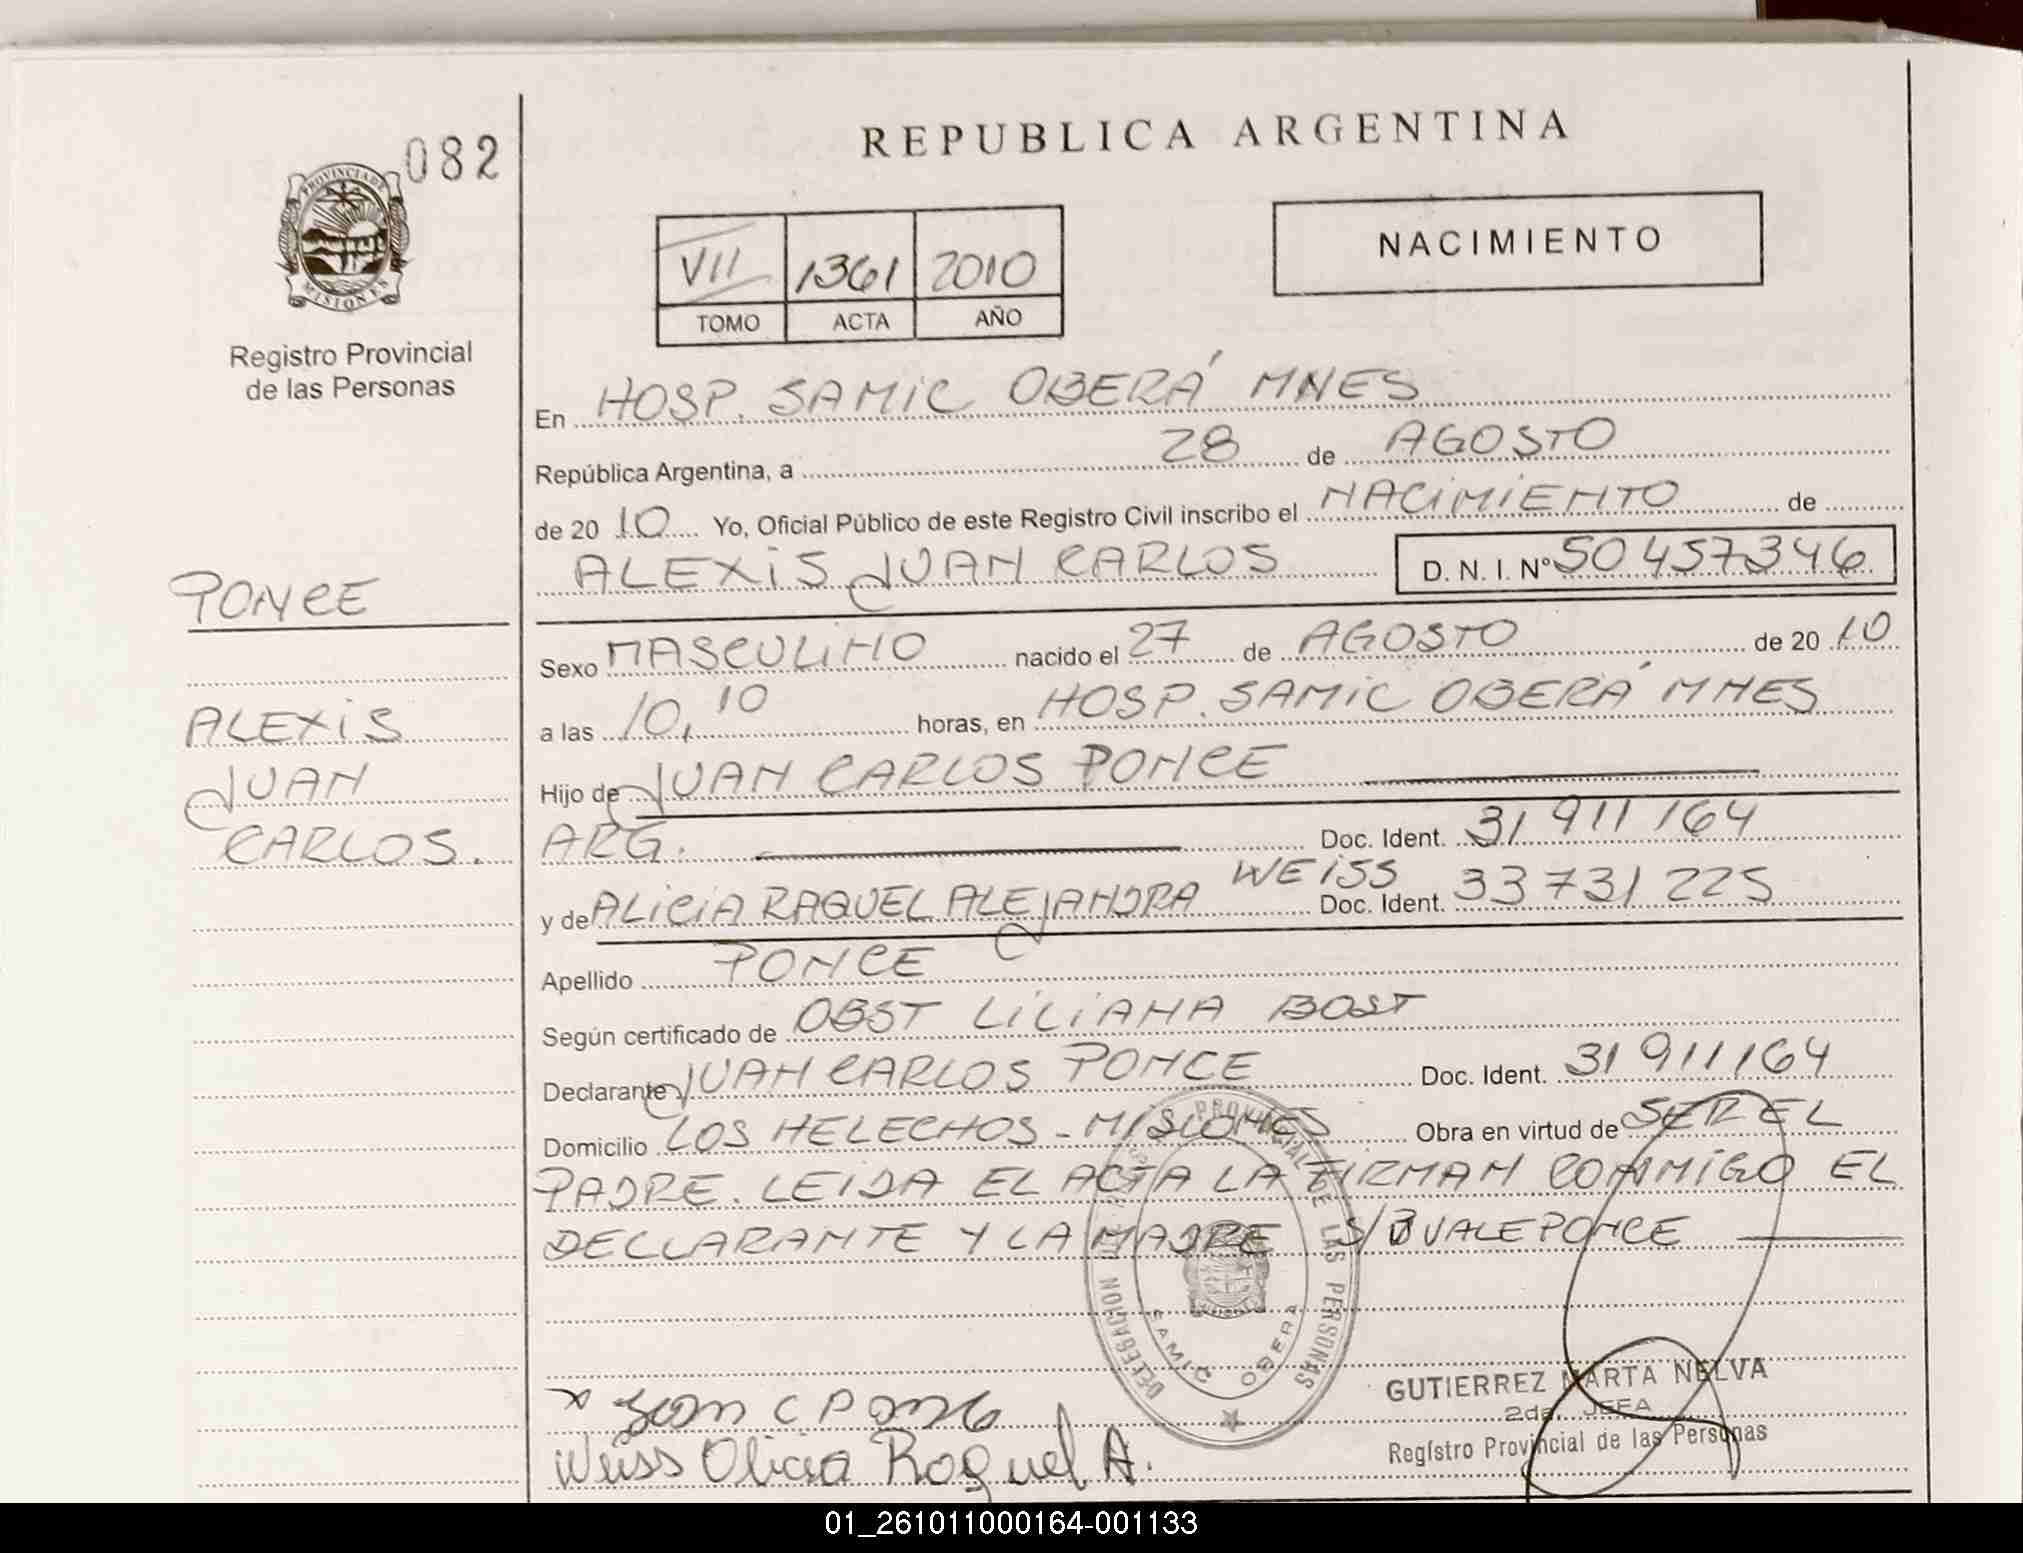 082
PROVINCIA DE
MISIONES
Registro Provincial
de las Personas
PONCE
ALEXIS
JUAN
CARLOS.
REPUBLICA ARGENTINA
VII 1361 2010
TOMO ACTA AÑO
NACIMIENTO
En HOSP. SAMIC OBERÁ MNES
República Argentina, a 28 de AGOSTO
de 20 10 Yo, Oficial Público de este Registro Civil inscribo el NACIMIENTO de
ALEXIS JUAN CARLOS D. N. I. N° 50 457346
Sexo MASCULINO nacido el 27 de AGOSTO de 20 10
a las 10,10 horas, en HOSP. SAMIC OBERÁ MNES
Hijo de JUAN CARLOS PONCE
ARG. Doc. Ident. 31 911 164
y de ALICIA RAQUEL ALEJANDRA WEISS Doc. Ident. 33 731 225
Apellido PONCE
Según certificado de OBST LILIANA BOST
Declarante JUAN CARLOS PONCE Doc. Ident. 31 911 164
Domicilio LOS HELECHOS - MISIONES Obra en virtud de SER EL
PADRE. LEIDA EL ACTA LA FIRMAN CONMIGO EL
DECLARANTE Y LA MADRE S/B VALE PONCE
PROVINCIAL DE LAS PERSONAS
DELEGACION
SAMIC OBERA
GUTIERREZ MARTA NELVA
2da. JEFA
Registro Provincial de las Personas
Weiss Olicia Roquel A.
01_261011000164-001133